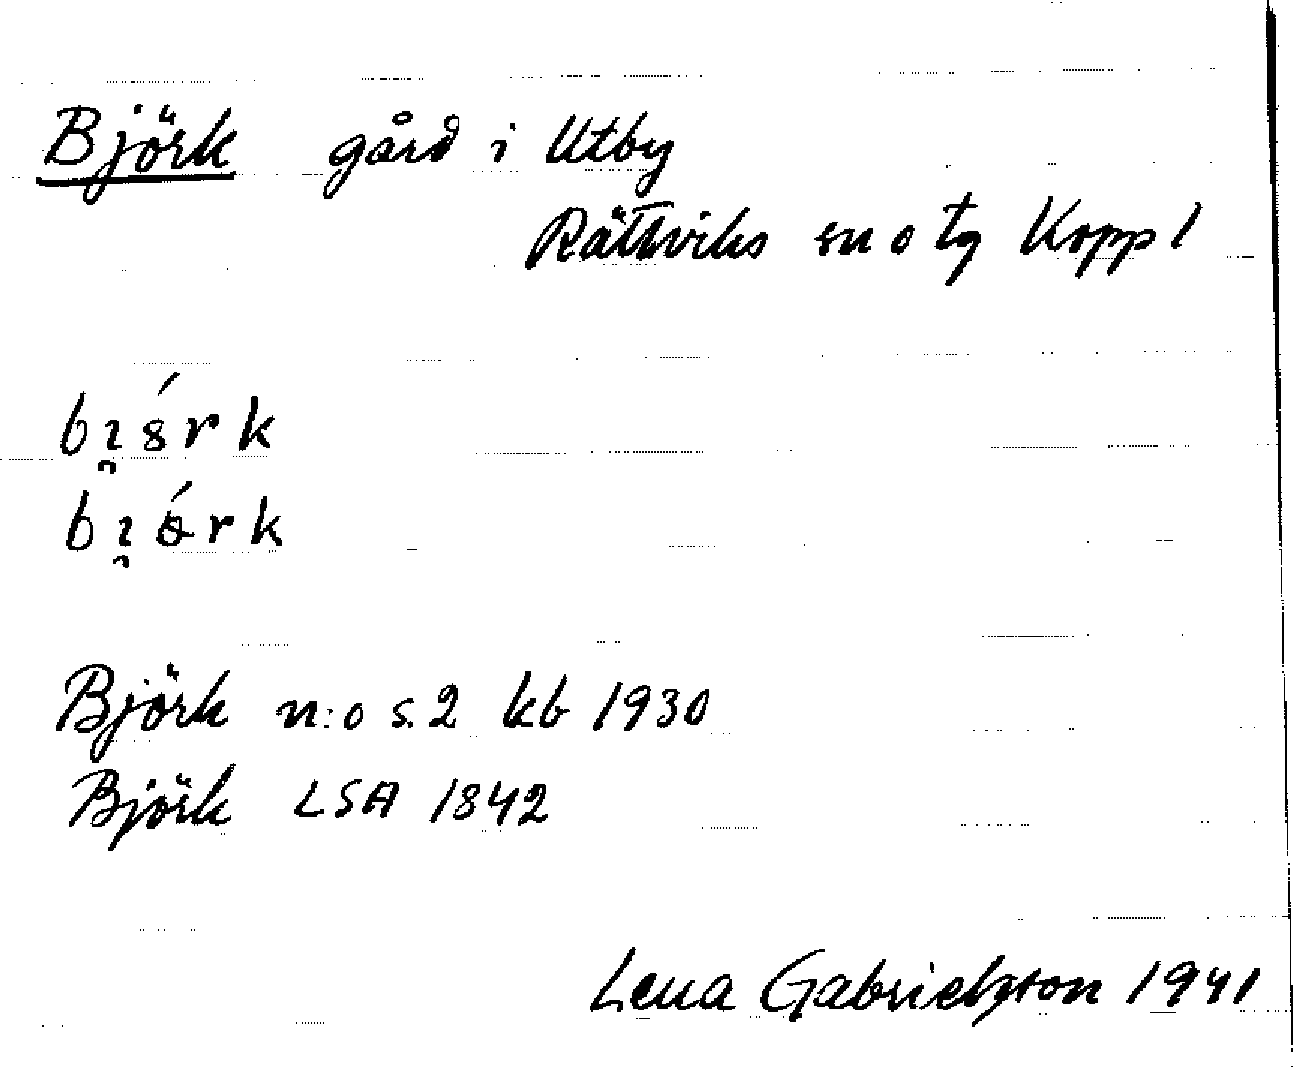 Björk gård i Utby
Rättviks sn o tg Kopp l
bı̯8́rk
bı̯ɵ́rk
Björk n:o s. 2 kb 1930
Björk LSA 1842
Lena Gabrielsson 1941